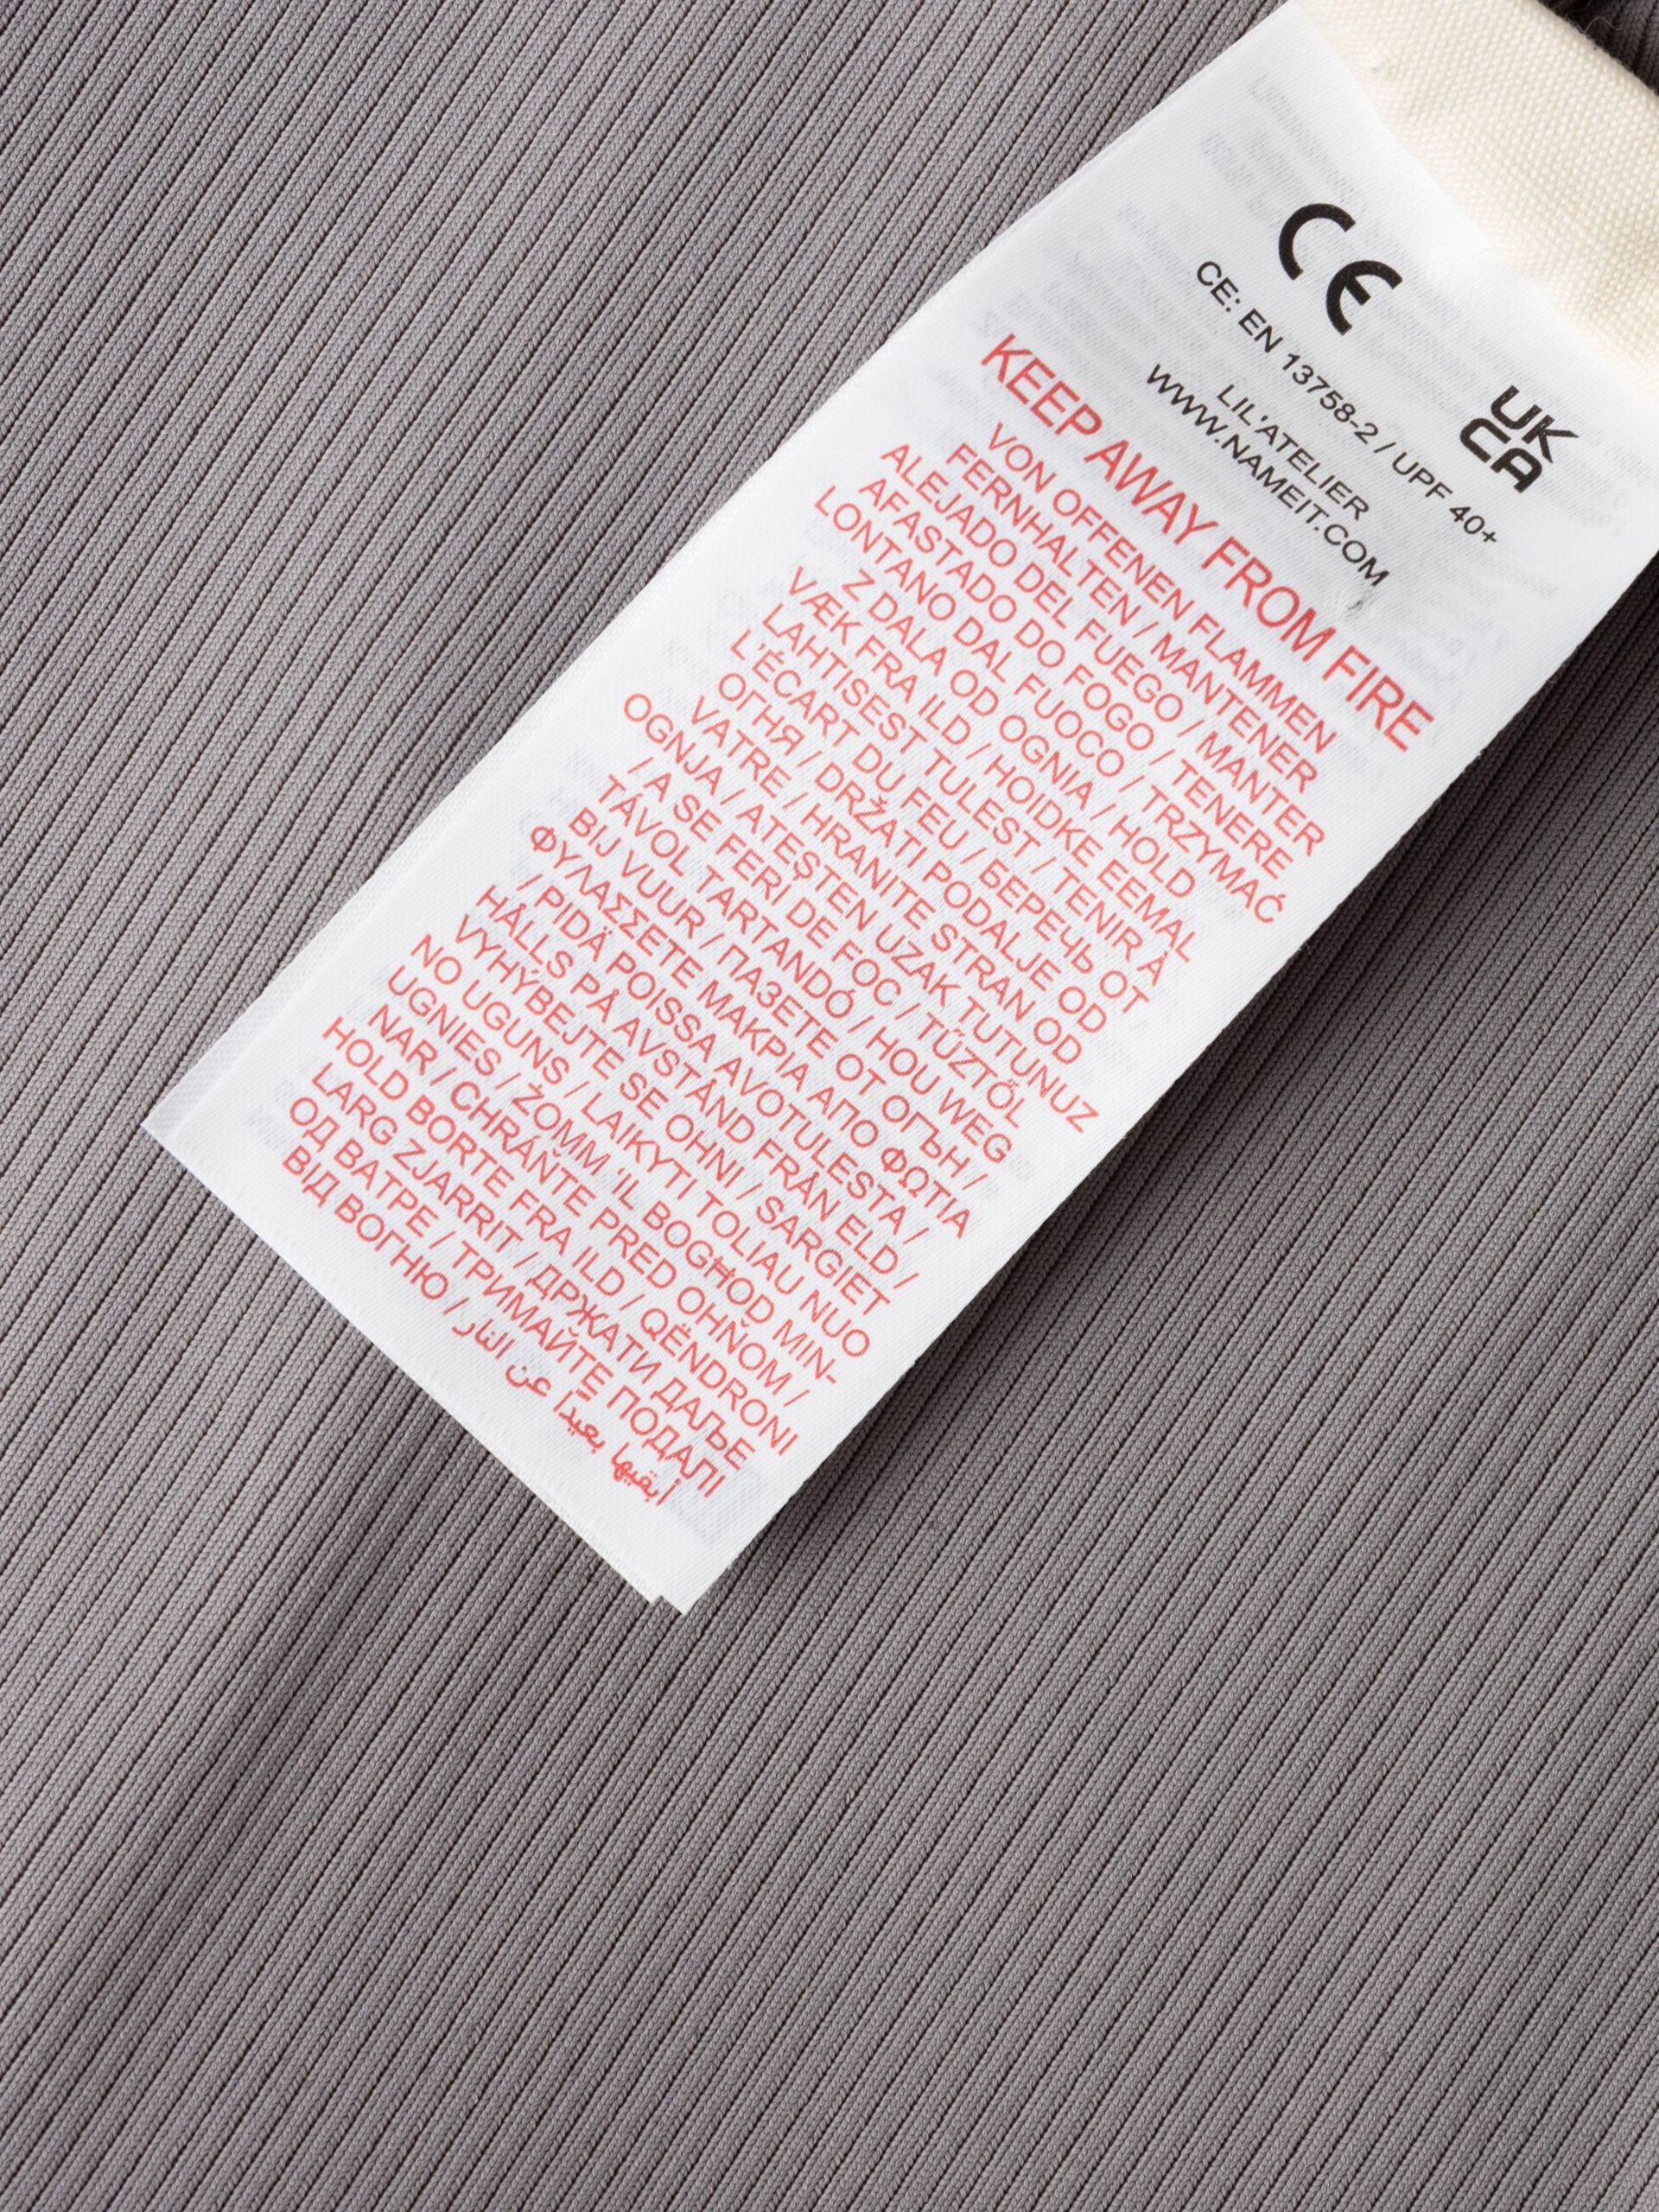 CE
UK
CA
CE: EN 13758-2 / UPF 40+
LIL'ATELIER
WWW.NAMEIT.COM
KEEP AWAY FROM FIRE
VON OFFENEN FLAMMEN
FERNHALTEN / MANTENER
ALEJADO DEL FUEGO / MANTER
AFASTADO DO FOGO / TENERE
LONTANO DAL FUOCO / TRZYMAĆ
Z DALA OD OGNIA / HOLD
VÆK FRA ILD / HOIDKE EEMAL
LAHTISEST TULEST / TENIR À
L'ÉCART DU FEU / БЕРЕЧЬ ОТ
ОГНЯ / DRŽATI PODALJE OD
VATRE / HRANITE STRAN OD
OGNJA / ATEŞTEN UZAK TUTUNUZ
/ A SE FERI DE FOC / TŰZTŐL
TÁVOL TARTANDÓ / HOU WEG
BIJ VUUR / ПАЗЕТЕ ОТ ОГЪН /
ΦΥΛΑΣΣΕΤΕ ΜΑΚΡΙΑ ΑΠΟ ΦΩΤΙΑ
/ PIDÄ POISSA AVOTULESTA /
HÅLLS PÅ AVSTÅND FRÅN ELD /
VYHÝBEJTE SE OHNI / SARGIET
NO UGUNS / LAIKYTI TOLIAU NUO
UGNIES / ŻOMM 'IL BOGĦOD MIN-
NAR / CHRÁŇTE PRED OHŇOM /
HOLD BORTE FRA ILD / QËNDRONI
LARG ZJARRIT / ДРЖАТИ ДАЉЕ
ОД ВАТРЕ / ТРИМАЙТЕ ПОДАЛІ
ВІД ВОГНЮ / أبقيها بعيداً عن النار